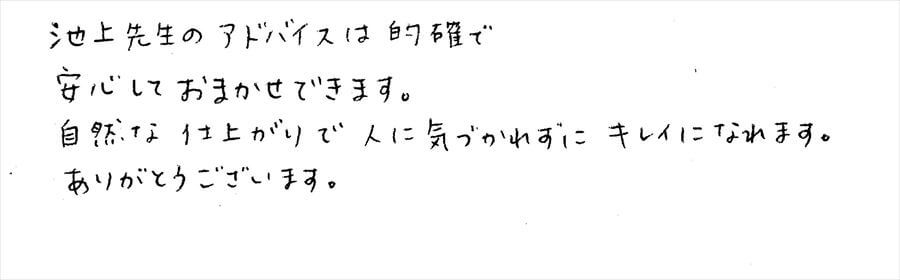 池上先生のアドバイスは的確で
安心しておまかせできます。
自然な仕上がりで人に気づかれずにキレイになれます。
ありがとうございます。